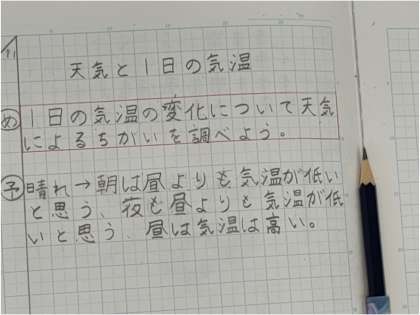 天気と1日の気温
め 1日の気温の変化について天気
によるちがいを調べよう。
予 晴れ→朝は昼よりも気温が低い
と思う、夜も昼よりも気温が低
いと思う、昼は気温は高い。